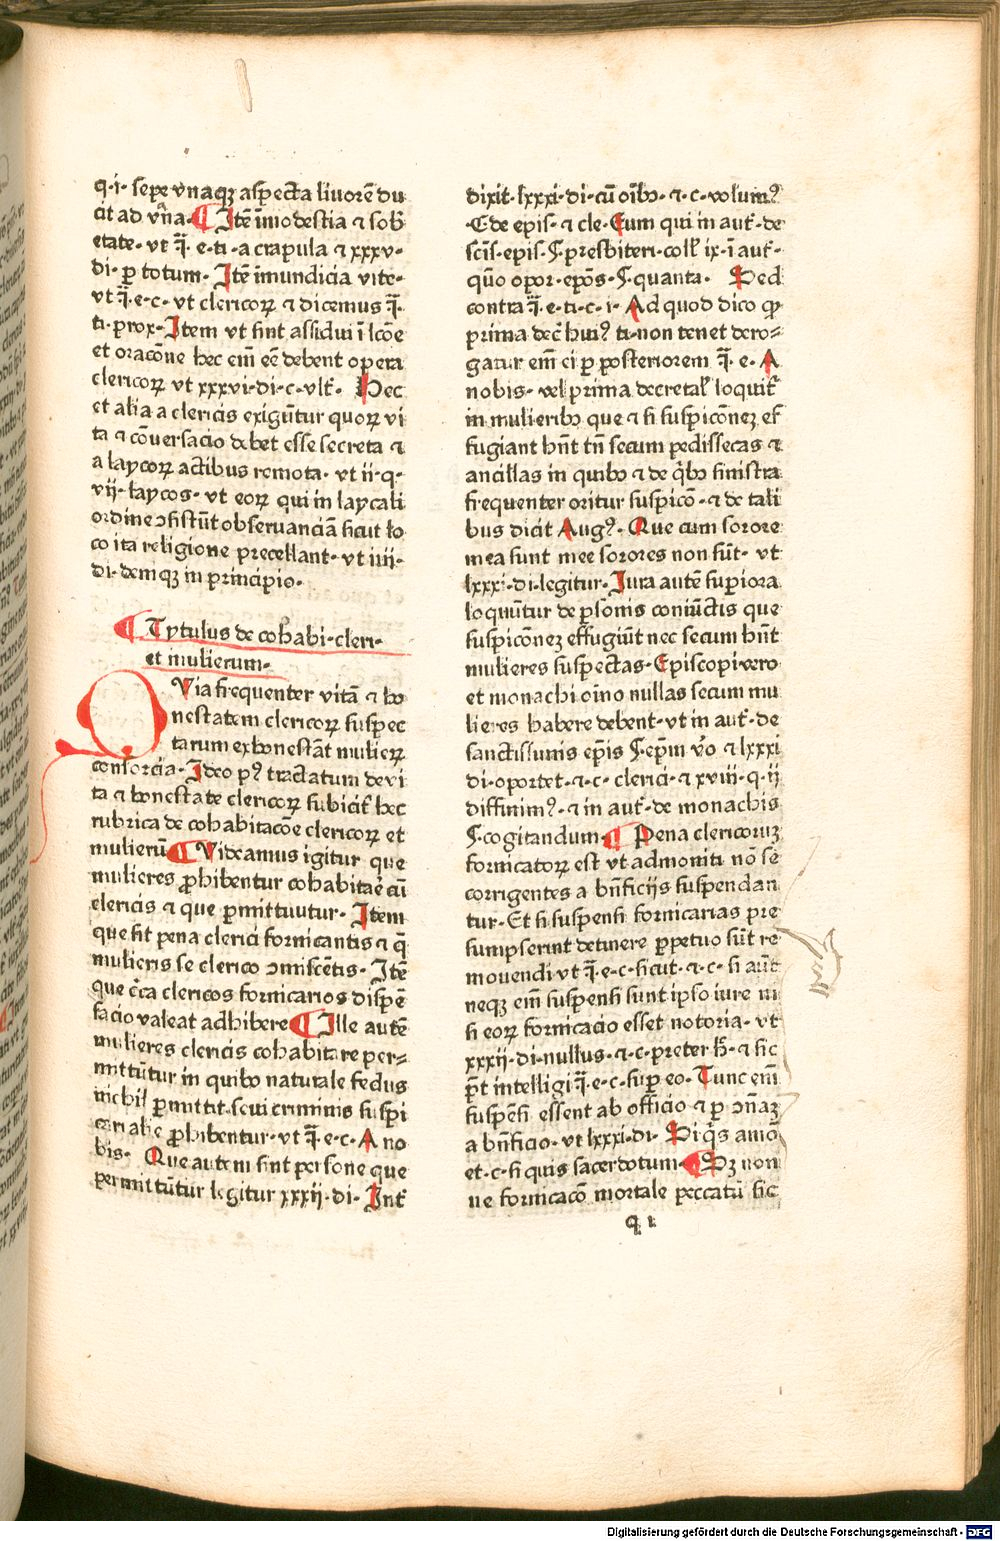 q·i· sepe vnaqꝫ aspecta liuorē du
cit ad vᷓna· ¶ Itē īmodestia ⁊ sob̄
etate· vt q̄· e· ti· a crapula ⁊ xxxv·
di· ꝑ totum· Itē īmundicia vite·
vt q̄· e· c· vt clericoꝝ ⁊ dicemus q̄·
ti· prox· Item vt sint assidui ī lc̄oe
et orac̄one hec em̄ eē debent opera
clericoꝝ vt xxxvi· di· c· vlt̄· Hec
et alia a clericis exigūtur quoꝝ vi
ta ⁊ cōuersacio debet esse secreta ⁊
a laycoꝝ actibus remota· vt ii· q·
vii· laycos· vt eoꝝ qui in laycali
ordine ↄsistūt obseruanciā sicut lo
co ita religione precellant· vt iiii·
di· demqꝫ in principio·
¶ Tytulus de cohabi· cleri·
et mulierum·
QVia frequenter vitā ⁊ ho
nestatem clericoꝝ suspec
tarum exhonestāt mulieꝝ
consorcia· Ideo pꝰ tractatum de vi
ta ⁊ honestate clericoꝝ subicit̄ hec
rubrica de cohabitac̄oe clericoꝝ et
mulierū ¶ Videamus igitur que
mulieres ꝓhibentur cohabitaē cū
clericis ⁊ que ꝑmittuutur· Item
que sit pena clerici fornicantis ⁊ q̄
mulieris se clerico ↄmiscētis· Itē
que c̄ca clericos fornicarios dispē
sacio valeat adhibere ¶ Ille autē
mulieres clericis cohabitare per⸗
mittūtur in quibꝰ naturale fedus
nichil ꝑmittit seui criminis suspi
cari alie ꝓhibentur· vt q̄· e· c· A no
bis· Que autem sint persone que
permittūtur legitur xxxii· di· Int̄
dixit· lxxxi· di· cū oībꝰ· ⁊ c· volumꝰ
·C· de epis· ⁊ cle· Cum qui in aut̄· de
scīs· epis· §· presbiteri· coll̄ ix· ī aut̄·
quō opor· epōs· §· quanta· Sed
contra q̄· e· ti· c· i· Ad quod dico ꝙ
prima dec̄ huiꝰ ti· non tenet dero⸗
gatur em̄ ei ꝑ posteriorem q̄· e· A
nobis· vel prima decretal̄ loquit̄
in mulieribꝰ que ⁊ si suspicōnez ef
fugiant hn̄t tn̄ secum pedissecas ⁊
ancillas in quibꝰ ⁊ de q̄bꝰ sinistra
frequenter oritur suspicō· ⁊ de tali
bus dicit Augꝰ· Que cum sorore
mea sunt mee sorores non sūt· vt
lxxxi· di· legitur· Iura autē supiora
loquūtur de ꝑsonis coniūctis que
suspicōnez effugiūt nec secum hn̄t
mulieres suspectas· Episcopi vero
et monachi oīno nullas secum mu
lieres habere debent· vt in aut̄· de
sanctissimis ep̄is §· ep̄m v̄o ⁊ lxxxi
di· oportet· ⁊ c· clerici· ⁊ xviii· q· ii
diffinimꝰ· ⁊ in aut̄· de monachis
§· cogitandum ¶ Pena clericoruꝫ
fornicatoꝝ est vt admoniti nō se
corrigentes a bn̄ficijs suspendan
tur· Et si suspensi fornicarias pre
sumpserint detinere ꝑpetuo sūt re
mouendi vt q̄· e· c· sicut· ⁊ c· si aūt
neqꝫ em̄ suspensi sunt ipso iure ni
si eoꝝ fornicacio esset notoria· vt
xxxij· di· nullus· ⁊ c· preter h̄· ⁊ sic
p̄t intelligi q̄· e· c· suꝑ eo· Tunc em̄
suspēsi essent ab officio ⁊ ꝑ ↄn̄aꝫ
a bn̄ficio· vt lxxxi· di· Si q̄s amō
et· c· si quis sacerdotum ¶ Sꝫ non
ne fornicacō mortale peccatū sic
q i
Digitalisierung gefördert durch die Deutsche Forschungsgemeinschaft - DFG